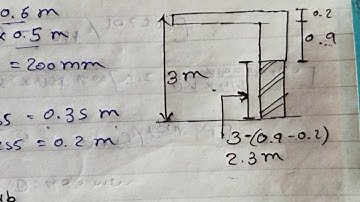 0.6 m
x 0.5 m
= 200 mm
ss = 0.35 m
ess = 0.2 m
0.2
0.9
3 m
3-(0.9-0.2)
2.3 m